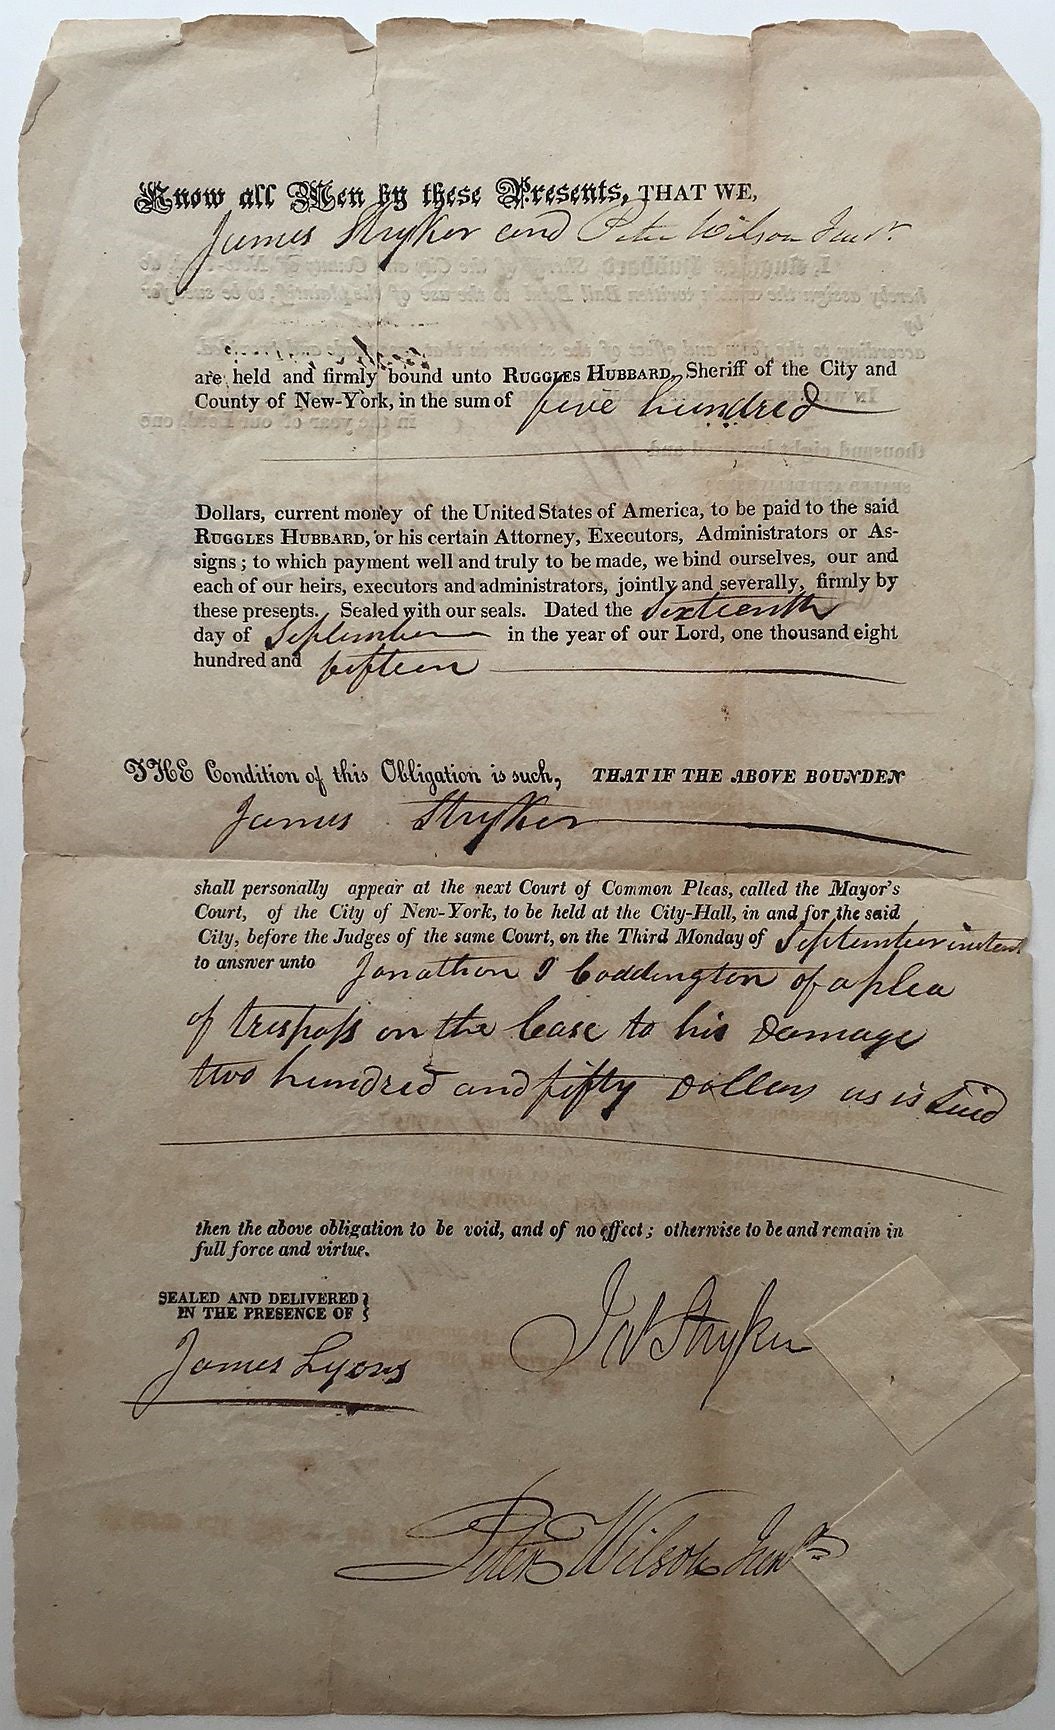 Know all Men by these Presents, THAT WE,
James Stryker and Peter Wilson Junr.
are held and firmly bound unto RUGGLES HUBBARD, Sheriff of the City and
County of New-York, in the sum of five hundred
Dollars, current money of the United States of America, to be paid to the said
RUGGLES HUBBARD, or his certain Attorney, Executors, Administrators or As-
signs; to which payment well and truly to be made, we bind ourselves, our and
each of our heirs, executors and administrators, jointly and severally, firmly by
these presents. Sealed with our seals. Dated the Sixteenth
day of September in the year of our Lord, one thousand eight
hundred and fifteen
THE Condition of this Obligation is such, THAT IF THE ABOVE BOUNDEN
James Stryker
shall personally appear at the next Court of Common Pleas, called the Mayor's
Court, of the City of New-York, to be held at the City-Hall, in and for the said
City, before the Judges of the same Court, on the Third Monday of September instant
to answer unto Jonathan I Coddington of a plea
of trespass on the Case to his Damage
two hundred and fifty Dollars as is Said
then the above obligation to be void, and of no effect; otherwise to be and remain in
full force and virtue.
SEALED AND DELIVERED }
IN THE PRESENCE OF }
James Lyons
Jas Stryker
Peter Wilson Junr